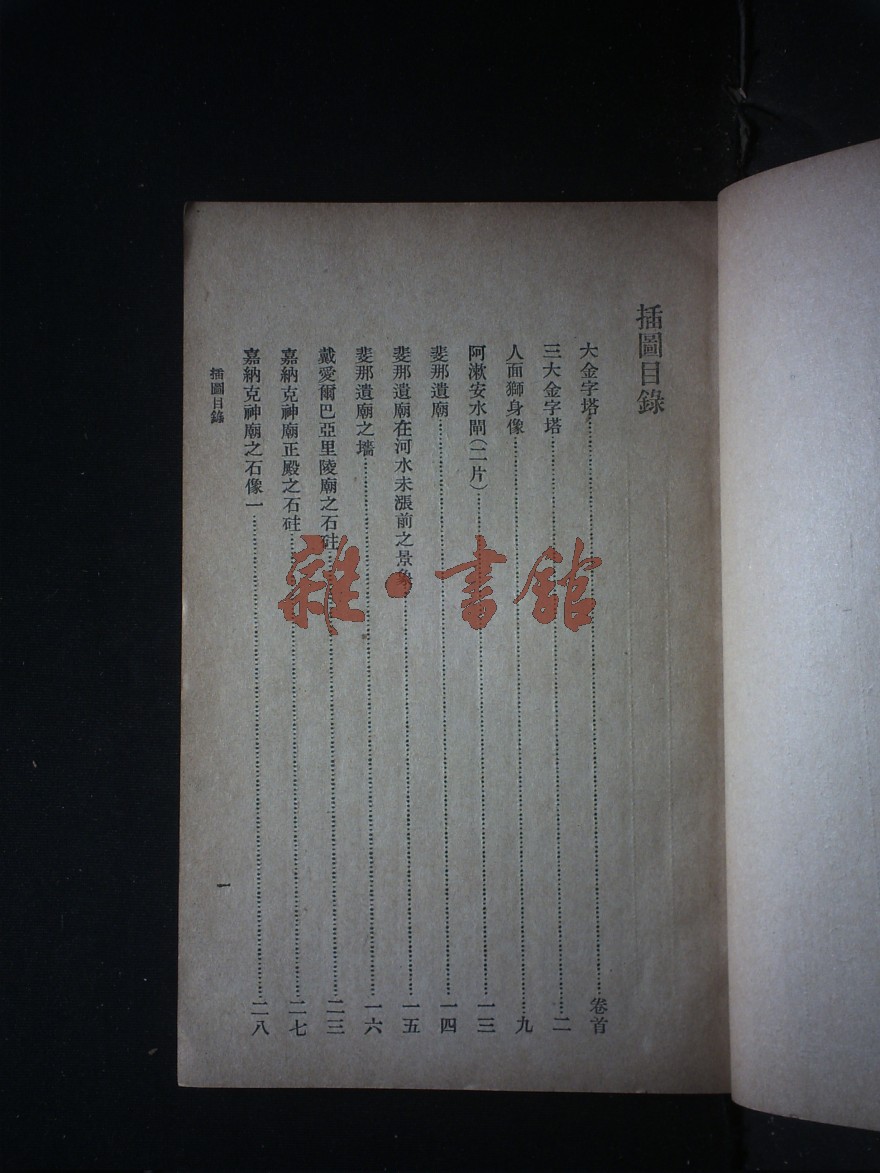 插圖目錄
大金字塔……卷首
三大金字塔……二
人面獅身像……九
阿漱安水閘(二片)……一三
斐那遺廟……一四
斐那遺廟在河水未漲前之景象……一五
斐那遺廟之墻……一六
戴愛爾巴亞里陵廟之石硅……二三
嘉納克神廟正殿之石硅……二七
嘉納克神廟之石像一……二八
插圖目錄
一
雜·書館